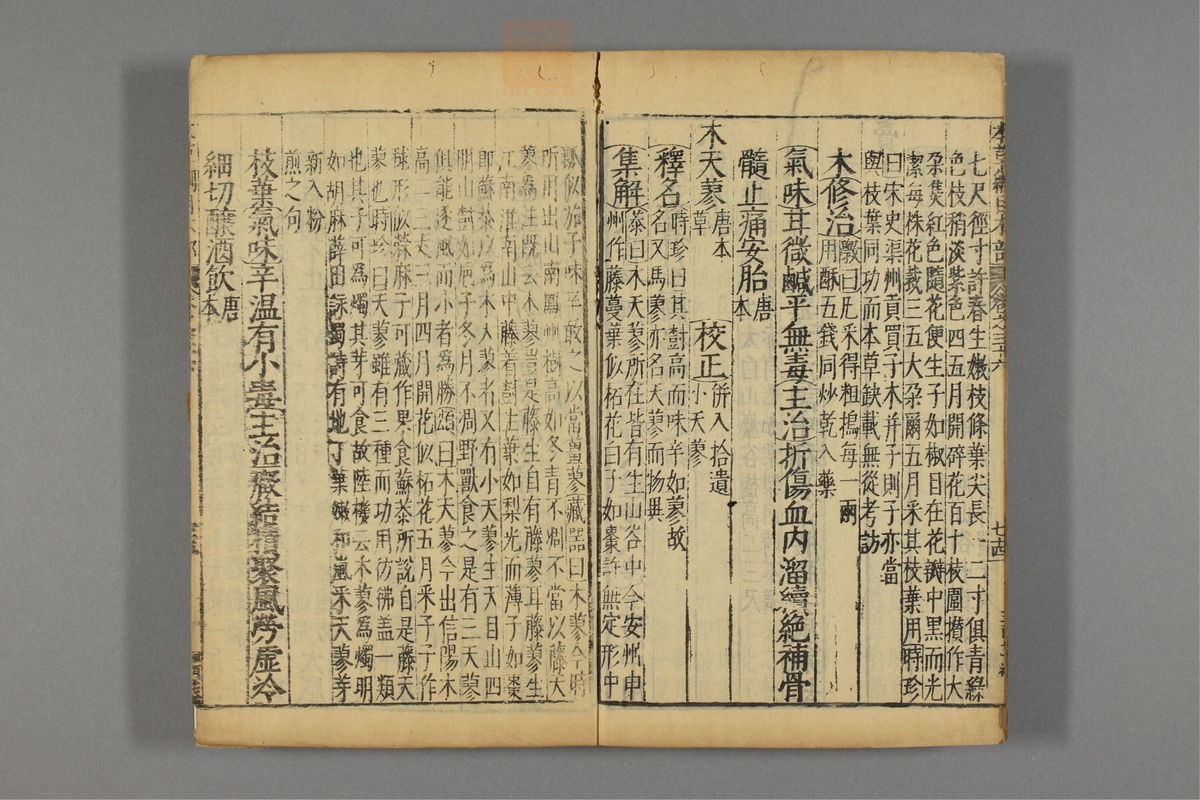 七尺徑寸許春生嫩枝條葉尖長一二寸俱青綠
色枝稍淡紫色四五月開碎花百十枝圍攢作大
朵焦紅色隨花便生子如椒目在花瓣中黑而光
潔每株花裁三五大朵爾五月采其枝葉用時珍
曰宋史渠州貢買子木并子則子亦當
與枝葉同功而本草缺載無從考訪
木修治斅曰凡采得粗搗每一兩
用酥五錢同炒乾入藥
氣味甘微鹹平無毒主治折傷血內溜續絶補骨
髓止痛安胎唐本
木天蓼唐本草 校正併入拾遺小天蓼
釋名時珍曰其樹高而味辛如蓼故
名又馬蓼亦名天蓼而物異
集解恭曰木天蓼所在皆有生山谷中今安州申
州作藤蔓葉似柘花白子如棗許無定形中
瓤似茄子味辛敢之以當薑蓼藏器曰木蓼今時
所用出山南鳳州樹高如冬青不凋不當以藤天
蓼爲注旣云木蓼豈是藤生自有藤蓼耳藤蓼生
江南淮南山中藤着樹生葉如梨光而薄子如棗
即蘇恭以爲木天蓼者又有小天蓼生天目山四
明山樹如梔子冬月不凋野獸食之是有三天蓼
俱能逐風而小者爲勝頌曰木天蓼今出信陽木
高二三丈三月四月開花似柘花五月采子子作
毬形似䔛麻子可藏作果食蘇恭所說自是藤天
蓼也時珍曰天蓼雖有三種而功用彷彿蓋一類
也其子可爲燭其芽可食故陸機云木蓼爲燭明
如胡麻薛田詠蜀詩有地丁葉嫩和嵐采天蓼芽
新入粉
煎之句
枝葉氣味辛温有小毒主治癥結積聚風勞虛冷
細切釀酒飲唐本